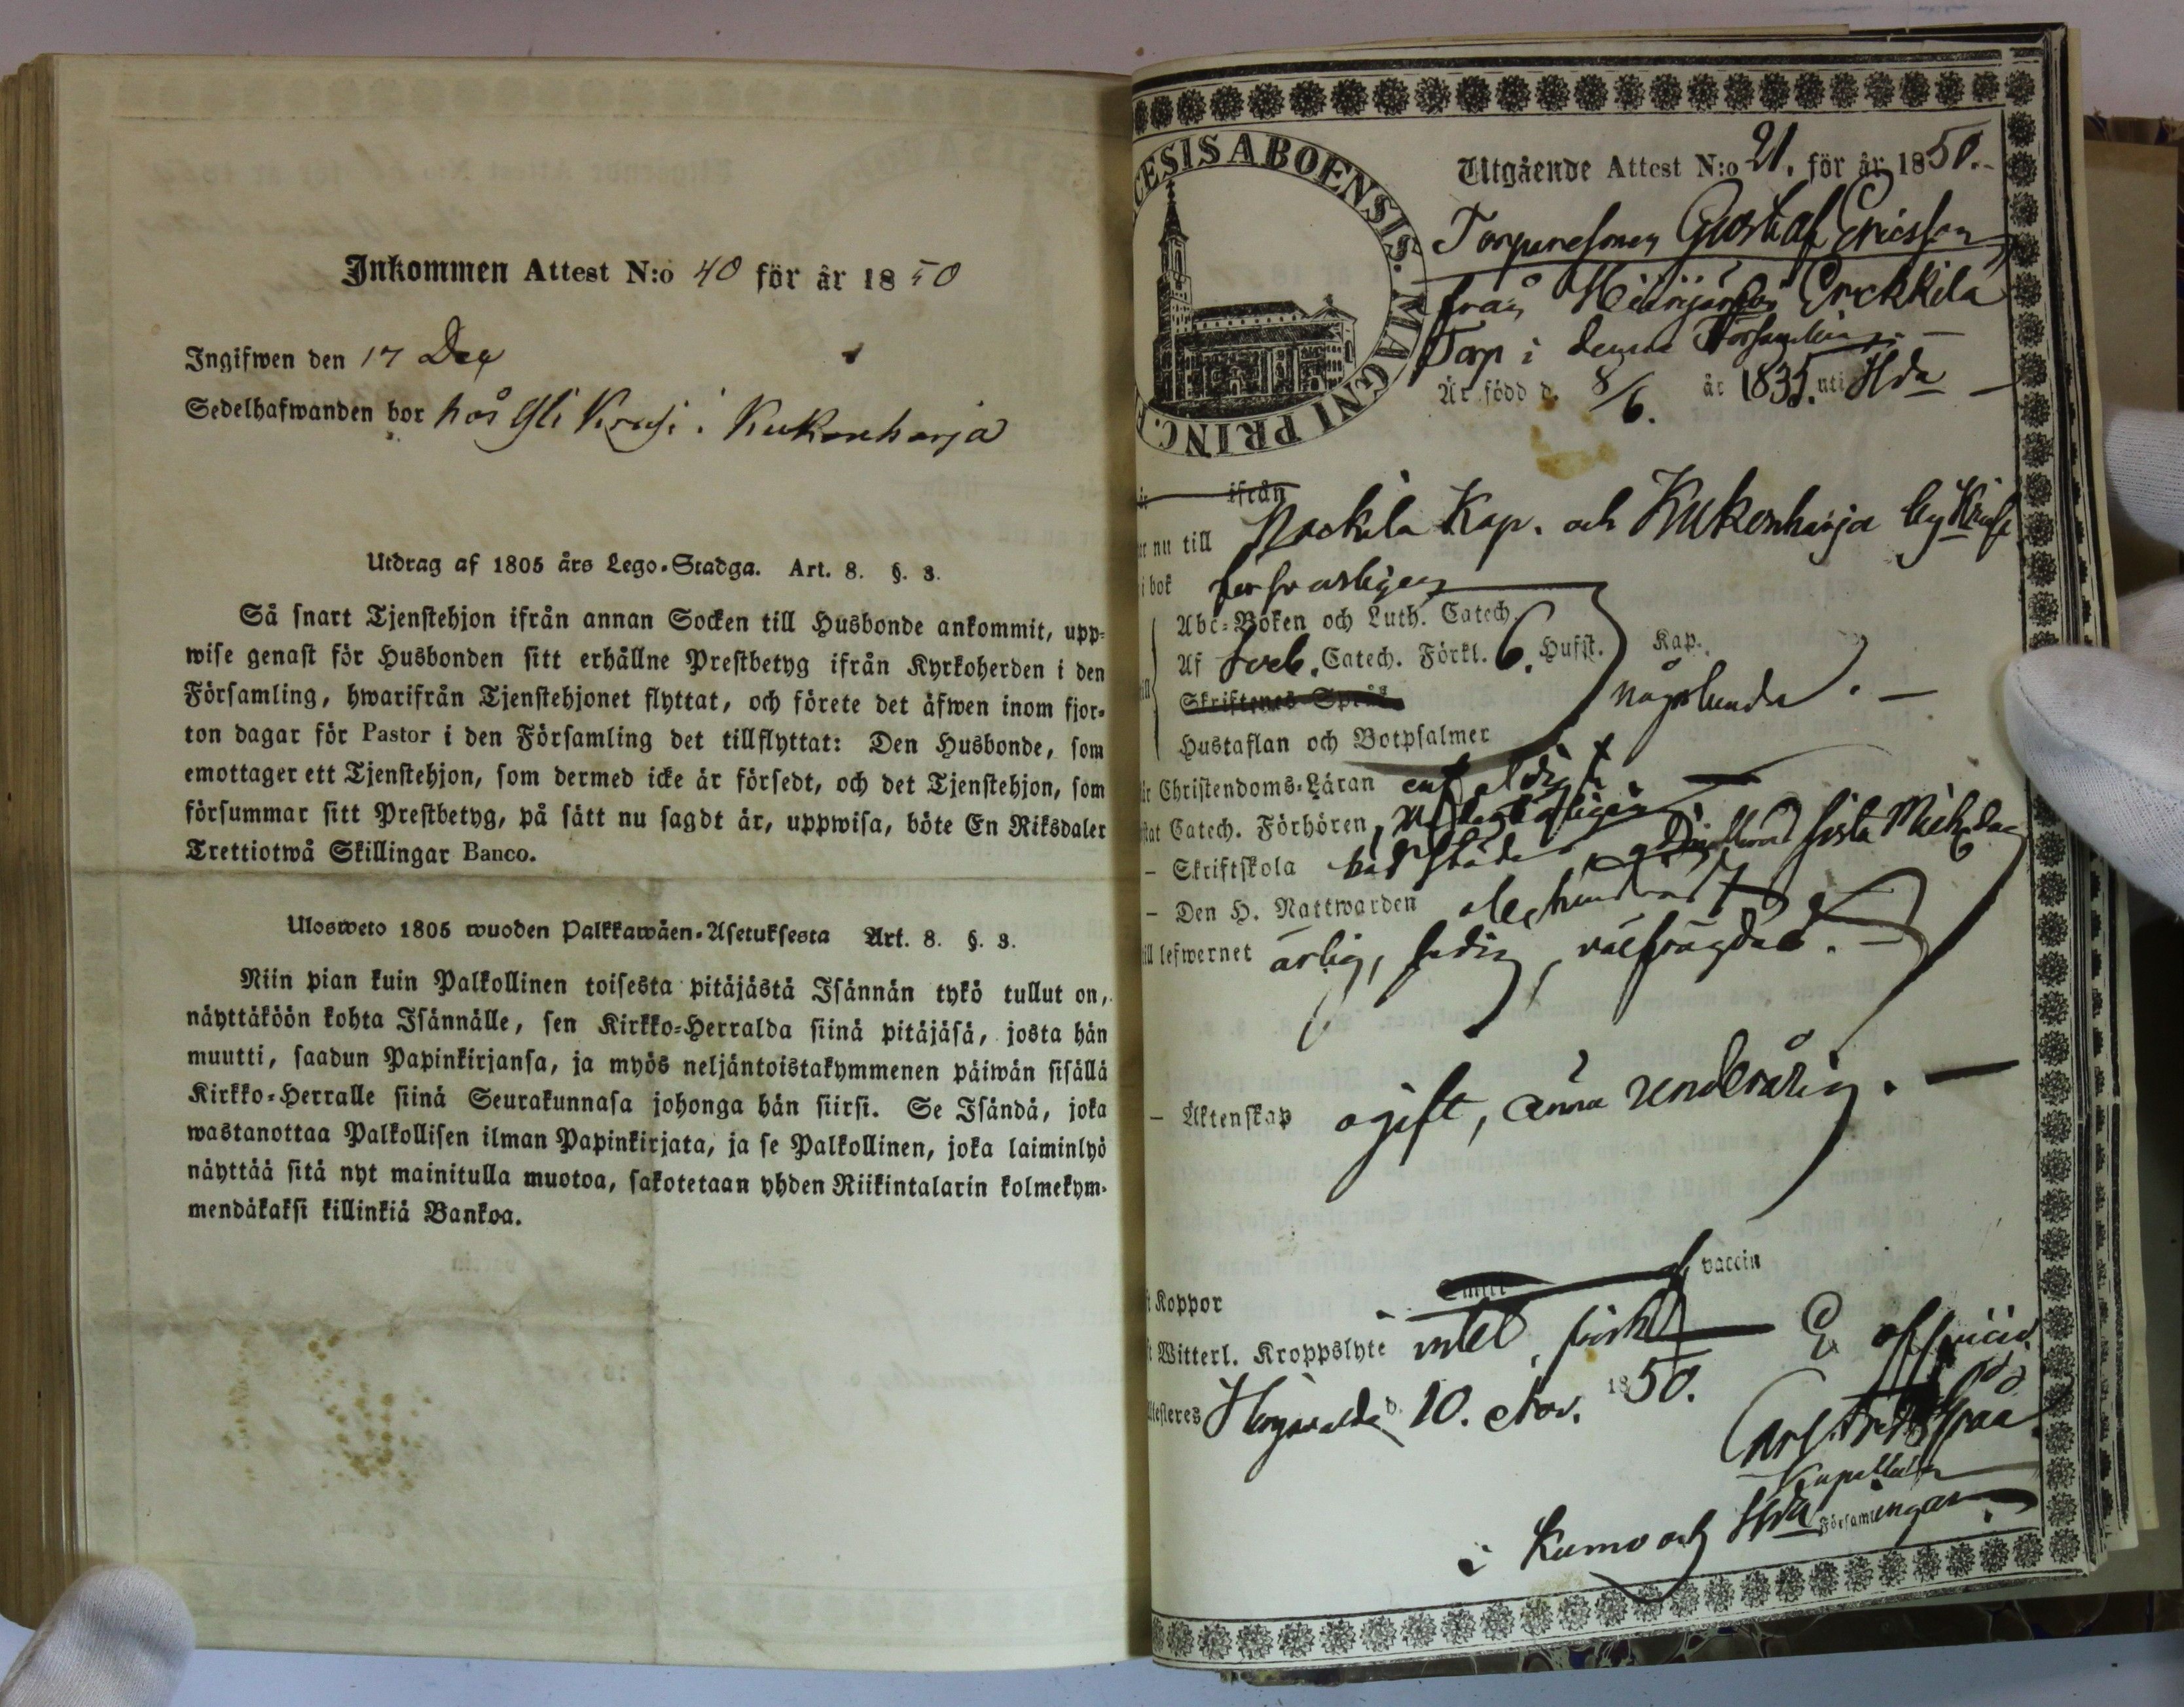 Inkommen Attest N:o 40 för år 1850
Ingifwen den 17 Dec
Sedelhafwanden bor hos Gli Krusi i Kukonharja
Utdrag af 1805 års Lego-Stadga. Art. 8. §. 3.
Så snart Tjenstehjon ifrån annan Socken till Husbonde ankommit, upp-
wise genast för Husbonden sitt erhållne Prestbetyg ifrån Kyrkoherden i den
Församling, hwarifrån Tjenstehjonet flyttat, och förete det äfwen inom fjor-
ton dagar för Pastor i den Församling det tillflyttat: Den Husbonde, som
emottager ett Tjenstehjon, som dermed icke är försedt, och det Tjenstehjon, som
försummar sitt Prestbetyg, på sätt nu sagdt är, uppwisa, böte En Riksdaler
Trettiotwå Skillingar Banco.
Ulosweto 1805 wuoden Palkkawäen-Asetuksesta Art. 8. §. 3.
Niin pian kuin Palkollinen toisesta pitäjästä Isännän tykö tullut on,
näyttäköön kohta Isännälle, sen Kirkko-Herralda siinä pitäjäsä, josta hän
muutti, saadun Papinkirjansa, ja myös neljäntoistakymmenen päiwän sisällä
Kirkko-Herralle siinä Seurakunnasa johonga hän siirsi. Se Isändä, joka
wastanottaa Palkollisen ilman Papinkirjata, ja se Palkollinen, joka laiminlyö
näyttää sitä nyt mainitulla muotoa, sakotetaan yhden Riikintalarin kolmekym-
mendäkaksi killinkiä Bankoa.
CESIS ABOENSIS. MAGNI PRINC.
Utgående Attest N:o 21. för år 1850.
Torparesonen Gustaf Ericsson
från Erckkilä
Torp i denna Församling.
Är född d. 8/6. år 1835. uti Hda
ifrån
nu till Nackila Kap. och Kukonharja by Krusi
i bok försvarligen
Abc-Boken och Luth. Catech.
Af Sveb. Catech. Förkl. 6. Hufst. Kap.
Skriftenes Språk
någorlunda.
Hustaflan och Botpsalmer
Christendoms-Läran enfaldigt
Catech. Förhören,
– Skriftskola sista Mich. dag
– Den H. Nattwarden
till lefwernet ärlig, sedig, välfrägdad.
– Äktenskap ogift, ännu underårig.
Koppor vaccin
Witterl. Kroppslyte intet, frisk Ex officio
Attesteres Harjavalda d. 10. Nov. 1850.
Carl Fred.
Kapellan
i Kumo och Hda Församlingar